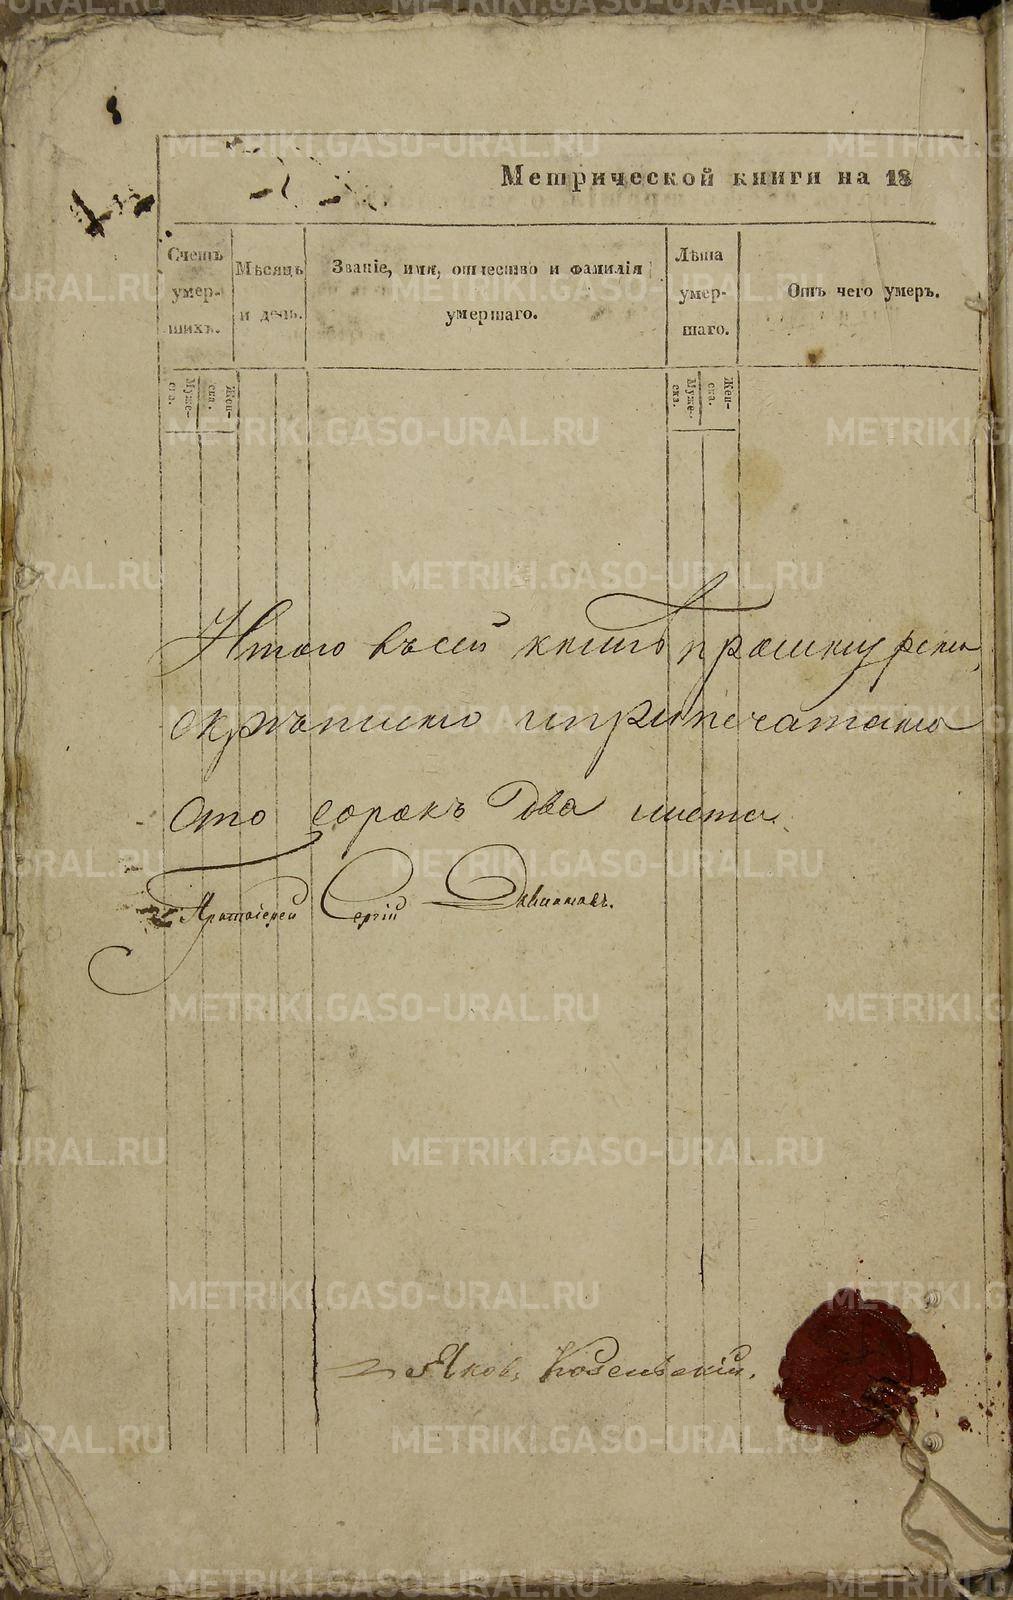 8
Метрической книги на 18
Счетъ умер- шихъ.
Мѣсяцъ и день.
Званіе, имя, отчество и фамилія умершаго.
Лѣта умер- шаго.
Отъ чего умеръ.
Муже- ска.
Жен- ска.
Муже- ска.
Жен- ска.
Итого въ сей книгѣ прошнурена,
скрѣплено и припечатано
сто сорокъ два листа.
Протоіерей Сергій
Яков. Козельскій.
METRIKI.GASO-URAL.RU